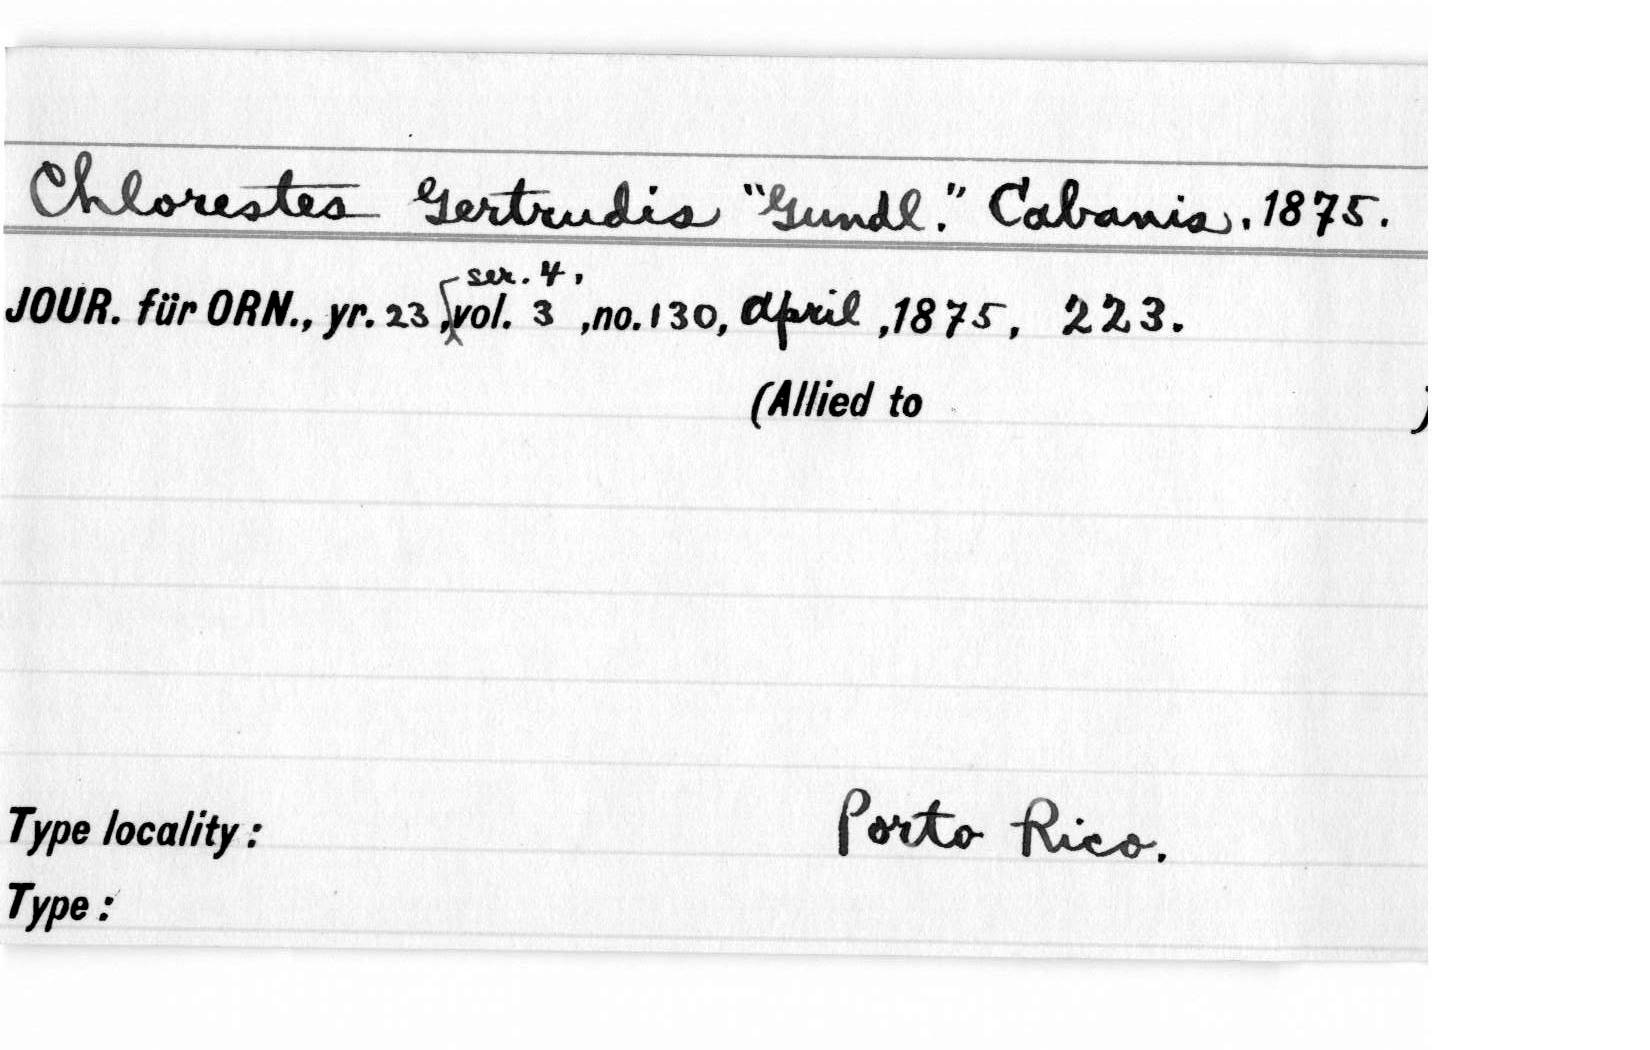 Chlorestes Gertrudis "Gundl." Cabanis, 1875.
JOUR. für ORN., yr. 23, ser. 4, vol. 3, no. 130, April, 1875, 223.
(Allied to )
Type locality: Porto Rico.
Type: